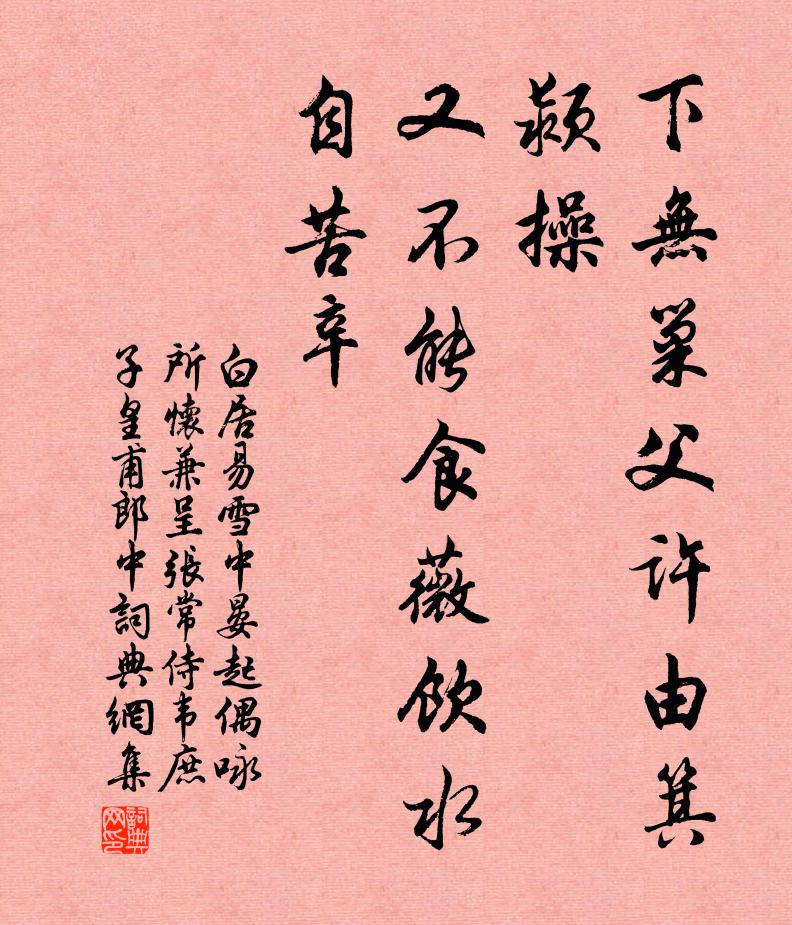 下無巢父許由箕
潁操
又不能食薇飲水
自苦辛
白居易雪中晏起偶咏
所懷兼呈張常侍韦庶
子皇甫郎中詞典網集
詞典
网印